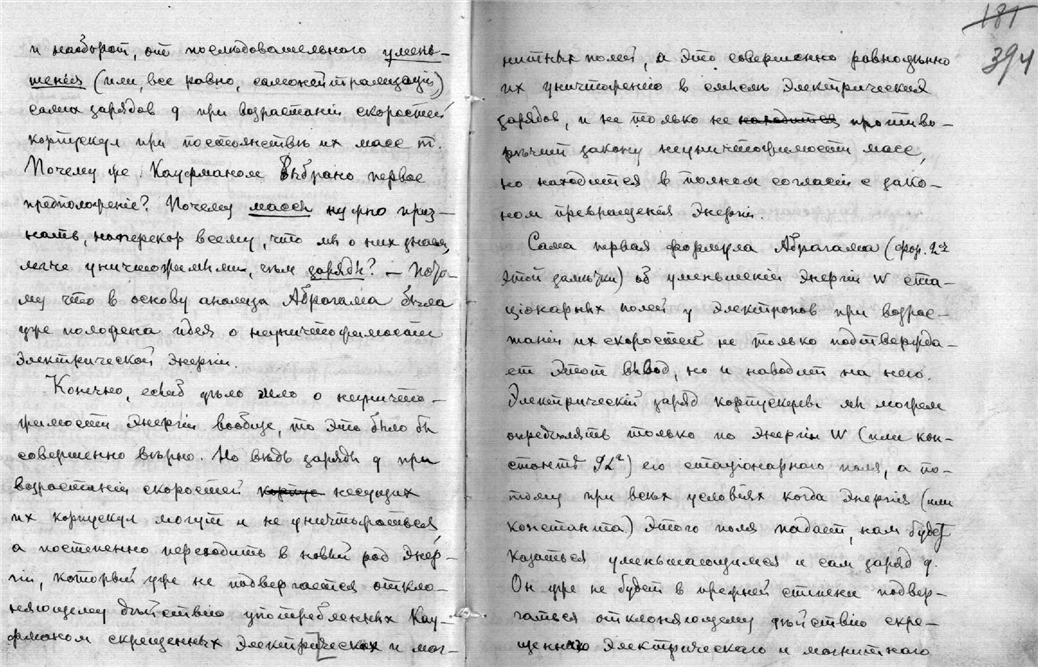 и наоборот, от последовательного умень-
шенія (или, все равно, самонейтрализаціи)
самих зарядов q при возрастаніи скоростей
корпускул при постоянствѣ их масс m.
Почему же Кауфманом выбрано первое
предположеніе? Почему массы нужно приз-
нать, наперекор всему, что мы о них знаем,
легче уничтожимыми, чѣм заряды? — Пото-
му что в основу анализа Абрагама была
уже положена идея о неуничтожимости
электрической энергіи.
Конечно, еслиб дѣло шло о неуничто-
жимости энергіи вообще, то это было бы
совершенно вѣрно. Но вѣдь заряды q при
возрастаніи скоростей корпус несущих
их корпускул могут и не уничтожаться
а постепенно переходить в новый род энер-
гіи, который уже не подвергается откло-
няющему дѣйствію употребленных Кау-
фманом скрещенных электрических и маг-
181
394
нитных полей, а это совершенно равноцѣнно
их уничтоженію в смыслѣ электрическия
зарядов, и не только не находится противо-
рѣчит закону неуничтожимости масс,
но находится в полном согласіи с зако-
ном превращенія энергіи.
Сама первая формула Абрагама (фор. 2
этой замѣтки) об уменьшеніи энергіи W ста-
ціонарных полей у электронов при возрас-
таніи их скоростей не только подтвержда-
ет этот вывод, но и наводит на него.
Электрическій заряд корпускулы мы можем
опредѣлять только по энергіи W (или кон-
станты) его стаціонарного поля, а по-
тому при всѣх условіях когда энергія (или
константа) этого поля падает, нам будет
казаться уменьшающимся и сам заряд q.
Он уже не будет в прежней степени подвер-
гаться отклоняющему дѣйствію скре-
щеннаго электрического и магнитного